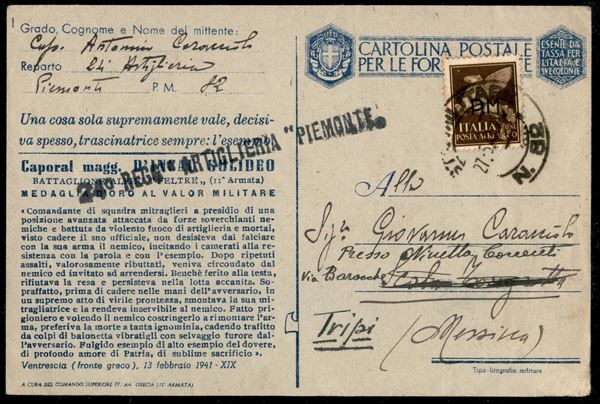 Grado, Cognome e Nome del mittente:
Cap. Antonino Caracciolo
Reparto 24 Artiglieria
Piemonte P. M. 82
Una cosa sola supremamente vale, decisi-
va spesso, trascinatrice sempre: l'esempio
Caporal magg. D'INCAU SOLIDEO
BATTAGLIONE ALPINI "FELTRE,, (11ª Armata)
MEDAGLIA D'ORO AL VALOR MILITARE
«Comandante di squadra mitraglieri a presidio di una
posizione avanzata attaccata da forze soverchianti ne-
miche e battuta da violento fuoco di artiglieria e mortai,
visto cadere il suo ufficiale, non desisteva dal falciare
con la sua arma il nemico, incitando i camerati alla re-
sistenza con la parola e con l'esempio. Dopo ripetuti
assalti, valorosamente ributtati, veniva circondato dal
nemico ed invitato ad arrendersi. Benchè ferito alla testa,
rifiutava la resa e persisteva nella lotta accanita. So-
praffatto, prima di cadere nelle mani dell'avversario, in
un supremo atto di virile prontezza, smontava la sua mi-
tragliatrice e la rendeva inservibile al nemico. Fatto pri-
gioniero e volendo il nemico costringerlo a rimontare l'ar-
ma, preferiva la morte a tanta ignominia, cadendo trafitto
da colpi di baionetta vibratigli con selvaggio furore dal-
l'avversario. Fulgido esempio di alto esempio del dovere,
di profondo amore di Patria, di sublime sacrificio».
Ventrescia (fronte greco), 13 febbraio 1941 - XIX
A CURA DEL COMANDO SUPERIORE FF. AA. GRECIA (11ª ARMATA)
REGG. ARTIGLIERIA "PIEMONTE"
CARTOLINA POSTALE
PER LE FORZE ARMATE
ESENTE DA
TASSA PER
L'ITALIA E
SVE COLONIE
B.M.
ITALIA
POSTA AEREA
N. 82
27.5
Alla
Sig.ra Giovanna Caracciolo
Presso Ninella Correnti
Via Baracche
Tripi (Messina)
Tipo-litografia militare